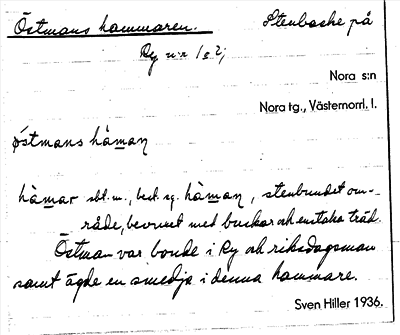 Östmans hammaren. Stenbacke på
Ry n:r 1 o 2;
Nora s:n
Nora tg., Västernorrl. l.
östmans hàmaņ
hàmar sbt. m., best. sg. hàmaņ, stenbundet om-
råde, bevuxet med buskar och enstaka träd.
Östman var bonde i Ry och riksdagsman
samt ägde en smedja i denna hammare.
Sven Hiller 1936.